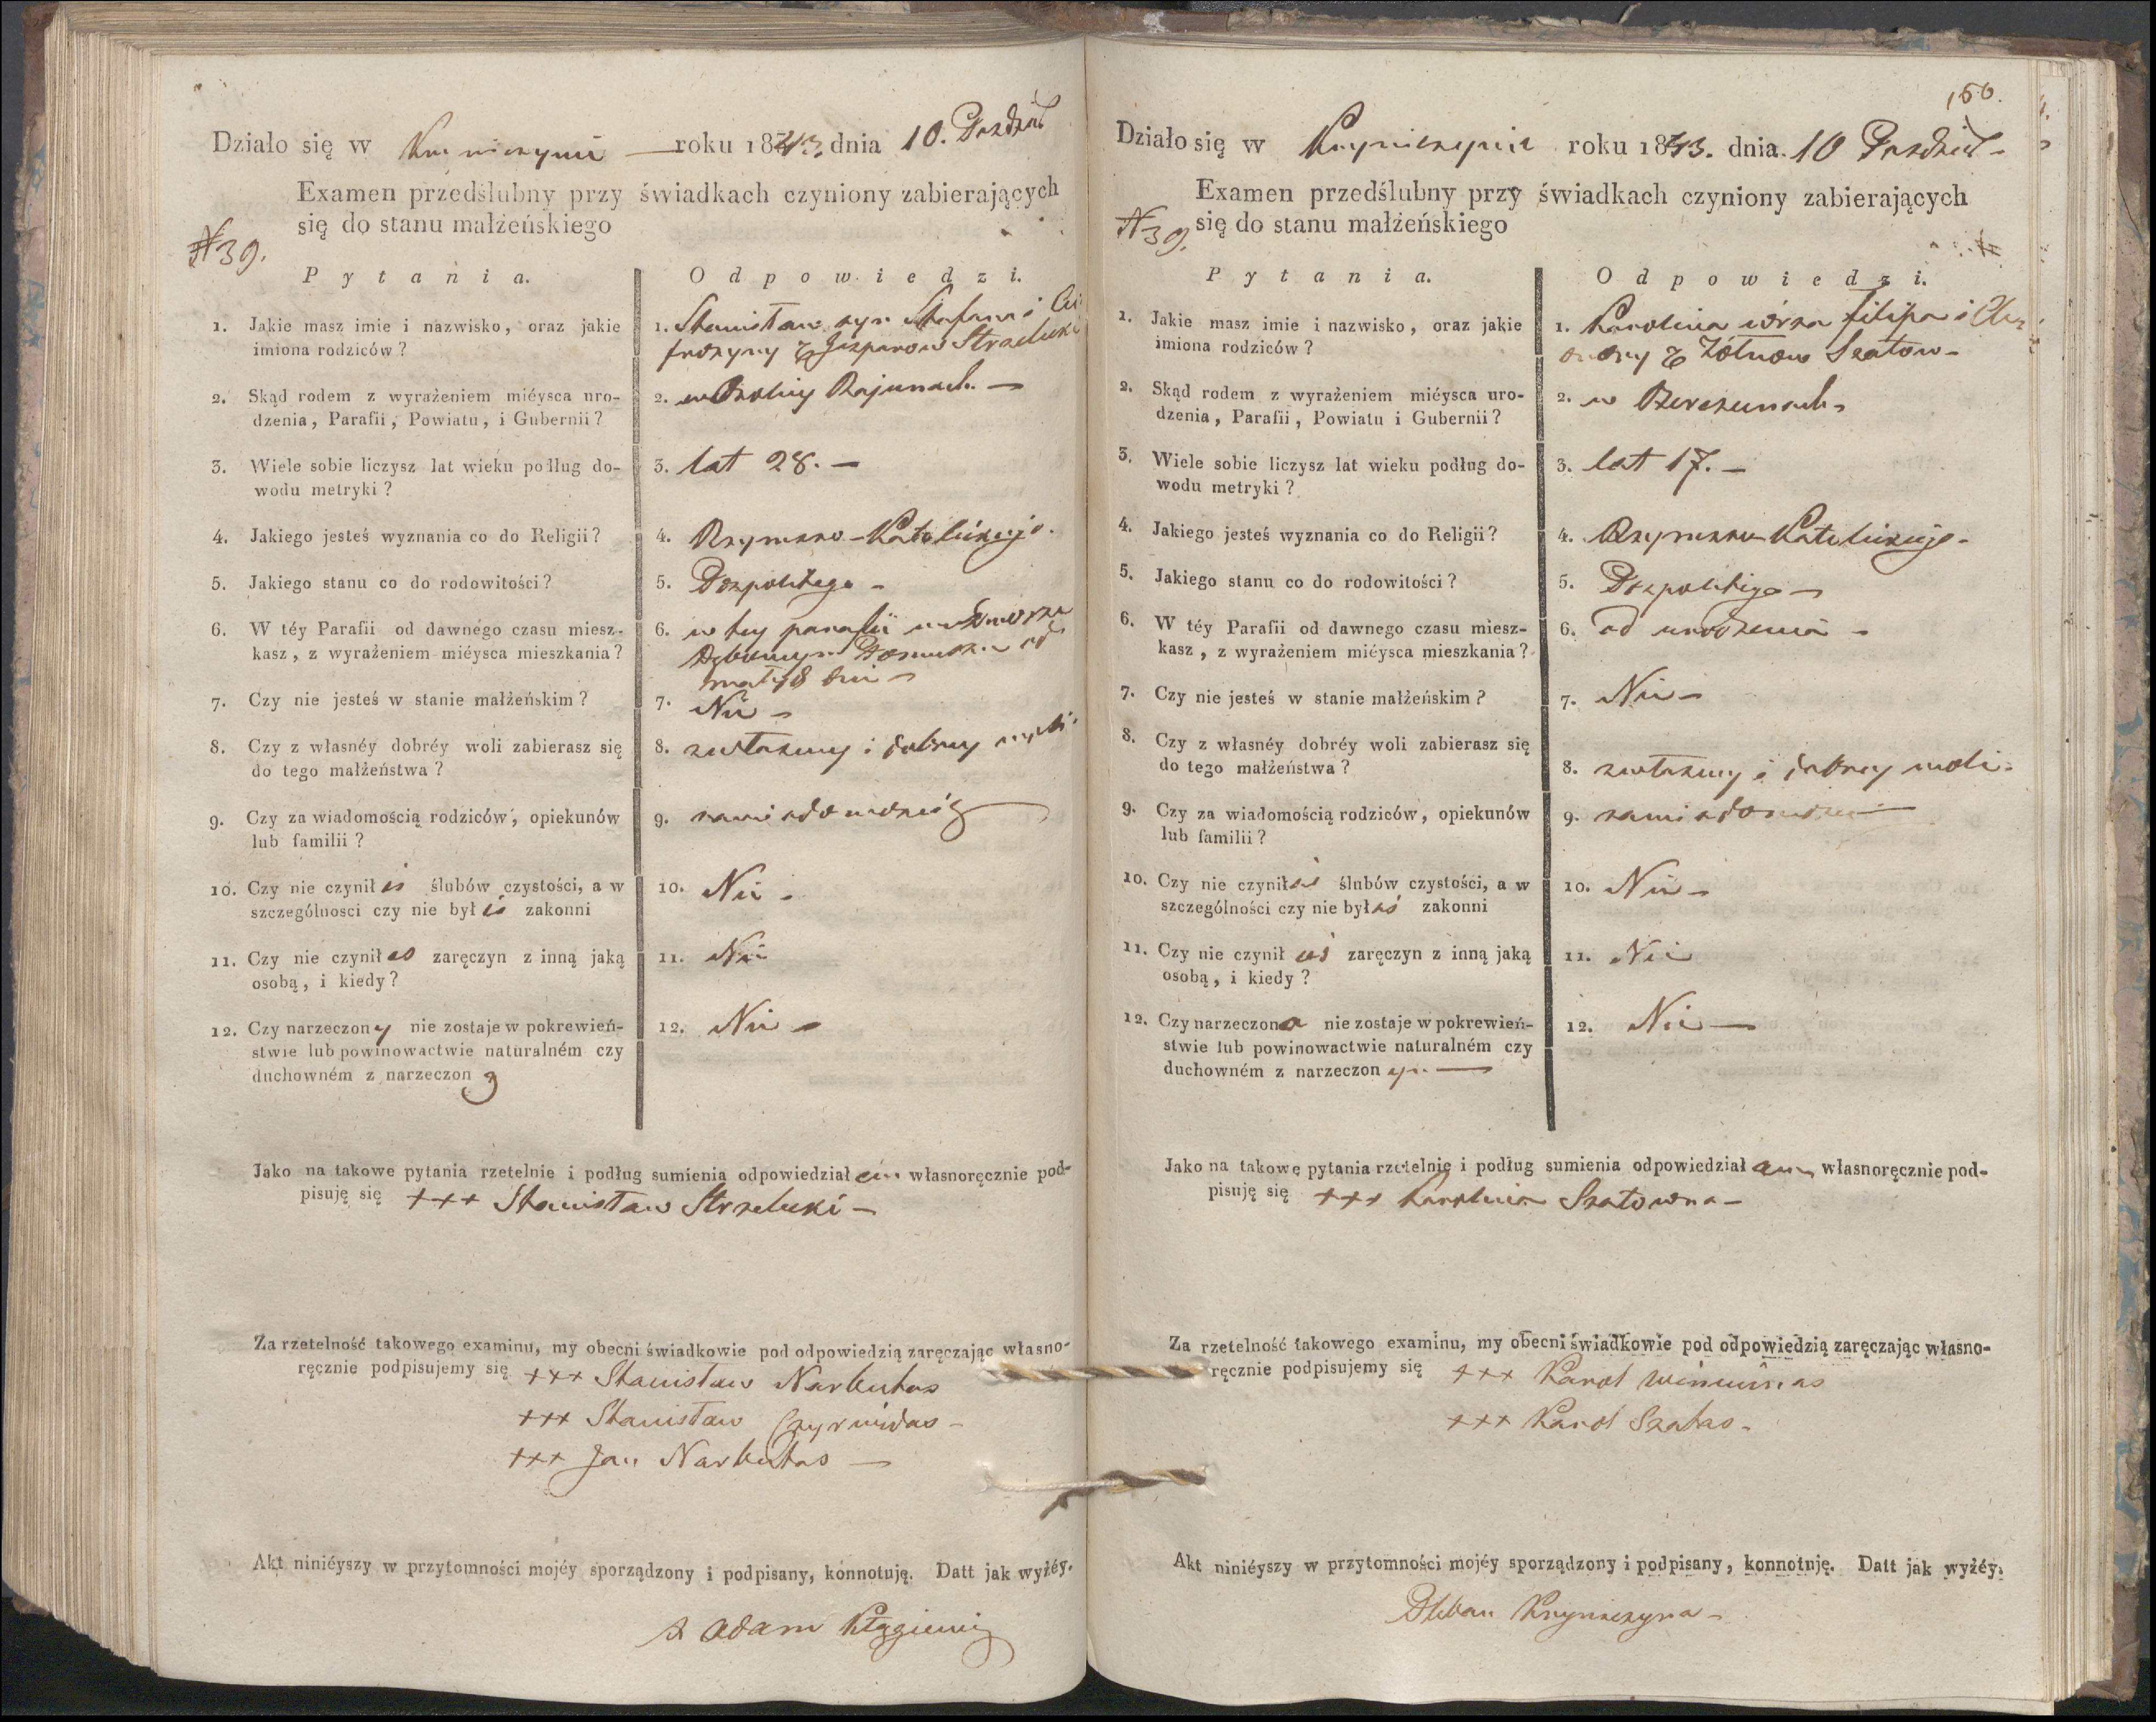 Działo się w Kryniczynie — roku 1843. dnia 10. Pazdzier
Examen przedślubny przy świadkach czyniony zabierających
się do stanu małżeńskiego
N 39.
Pytania. Odpowiedzi.
1. Jakie masz imie i nazwisko, oraz jakie
imiona rodziców?
1. Stanisław syn Stefana i
z Gasparow
2. Skąd rodem z wyrażeniem miéysca uro-
dzenia, Parafii, Powiatu, i Gubernii?
2. w Rajunach. —
3. Wiele sobie liczysz lat wieku podług do-
wodu metryki?
3. lat 28. —
4. Jakiego jesteś wyznania co do Religii?
4. Rzymsko-Katolickiego.
5. Jakiego stanu co do rodowitości?
5. Pospolitego —
6. W téy Parafii od dawnego czasu miesz-
kasz, z wyrażeniem miéysca mieszkania?
6. w tey parafii
7. Czy nie jesteś w stanie małżeńskim?
7. Nie —
8. Czy z własnéy dobréy woli zabierasz się
do tego małżeństwa?
8. zwłasney i dobrey woli
9. Czy za wiadomością rodziców, opiekunów
lub familii?
9. zawiadomością
10. Czy nie czyniłeś ślubów czystości, a w
szczególnosci czy nie byłeś zakonni
10. Nie —
11. Czy nie czyniłes zaręczyn z inną jaką
osobą, i kiedy?
11. Nie
12. Czy narzeczony nie zostaje w pokrewień-
stwie lub powinowactwie naturalném czy
duchowném z narzeczoną
12. Nie —
Jako na takowe pytania rzetelnie i podług sumienia odpowiedziałem własnoręcznie pod-
pisuję się +++ Stanisław Strzelecki —
Za rzetelność takowego examinu, my obecni świadkowie pod odpowiedzią zaręczając własno-
ręcznie podpisujemy się +++ Stanisław Narbutas
+++ Stanisław
+++ Jan Narbutas —
Akt niniéyszy w przytomności mojéy sporządzony i podpisany, konnotuję. Datt jak wyżéy.
X Adam
150.
Działo się w Kryniczynie roku 1843. dnia. 10 Pazdzier —
Examen przedślubny przy świadkach czyniony zabierających
się do stanu małżeńskiego
N 39.
Pytania. Odpowiedzi.
1. Jakie masz imie i nazwisko, oraz jakie
imiona rodziców?
1. Karolina córka Filipa i
z Szatow —
2. Skąd rodem z wyrażeniem miéysca uro-
dzenia, Parafii, Powiatu i Gubernii?
2. w Berezunach
3. Wiele sobie liczysz lat wieku podług do-
wodu metryki?
3. lat 17. —
4. Jakiego jesteś wyznania co do Religii?
4. Rzymsko Katolickiego —
5. Jakiego stanu co do rodowitości?
5. Pospolitego —
6. W téy Parafii od dawnego czasu miesz-
kasz, z wyrażeniem miéysca mieszkania?
6. od urodzenia —
7. Czy nie jesteś w stanie małżeńskim?
7. Nie —
8. Czy z własnéy dobréy woli zabierasz się
do tego małżeństwa?
8. zwłasney i dobrey woli —
9. Czy za wiadomością rodziców, opiekunów
lub familii?
9. zawiadomością
10. Czy nie czyniłaś ślubów czystości, a w
szczególności czy nie byłaś zakonni
10. Nie —
11. Czy nie czyniłaś zaręczyn z inną jaką
osobą, i kiedy?
11. Nie
12. Czy narzeczona nie zostaje w pokrewień-
stwie lub powinowactwie naturalném czy
duchowném z narzeczonym —
12. Nie —
Jako na takowe pytania rzetelnie i podług sumienia odpowiedziałam własnoręcznie pod-
pisuję się +++ Karolina Szatowna —
Za rzetelność takowego examinu, my obecni świadkowie pod odpowiedzią zaręczając własno-
ręcznie podpisujemy się +++ Karol
+++ Karol Szatas —
Akt niniéyszy w przytomności mojéy sporządzony i podpisany, konnotuję. Datt jak wyżéy.
Pleban Krynczyna —